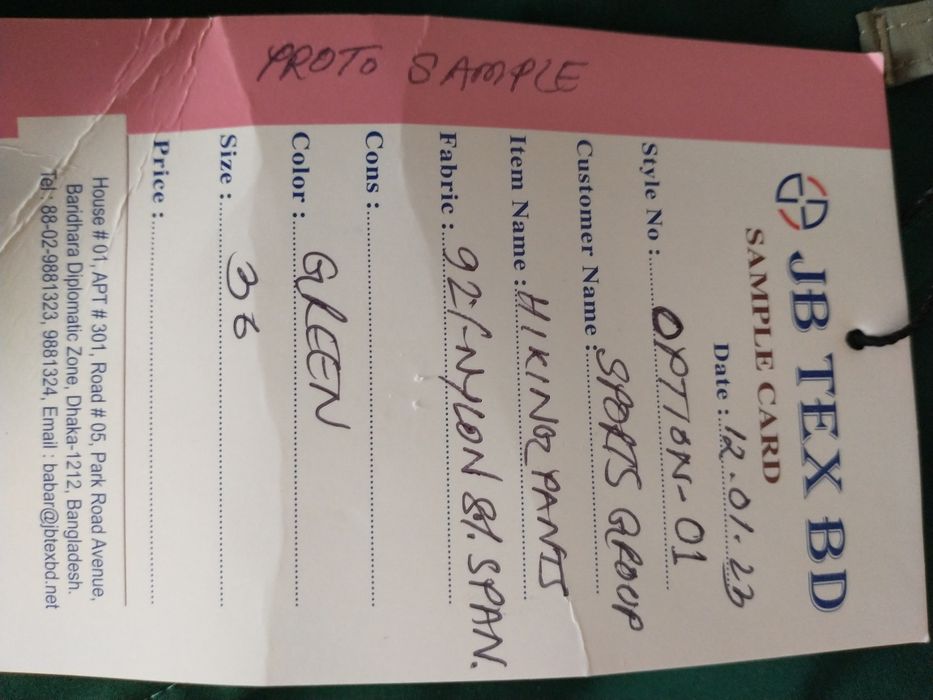 JB TEX BD
SAMPLE CARD
Date : 12.01.23
Style No : OPTION-01
Customer Name : SPORTS GROUP
Item Name : HIKING PANTS
Fabric : 92% NYLON 8% SPAN.
Cons :
Color : GREEN
Size : 36
Price :
House # 01, APT # 301, Road # 05, Park Road Avenue,
Baridhara Diplomatic Zone, Dhaka-1212, Bangladesh.
Tel : 88-02-9881323, 9881324, Email : babar@jbtexbd.net
PROTO SAMPLE